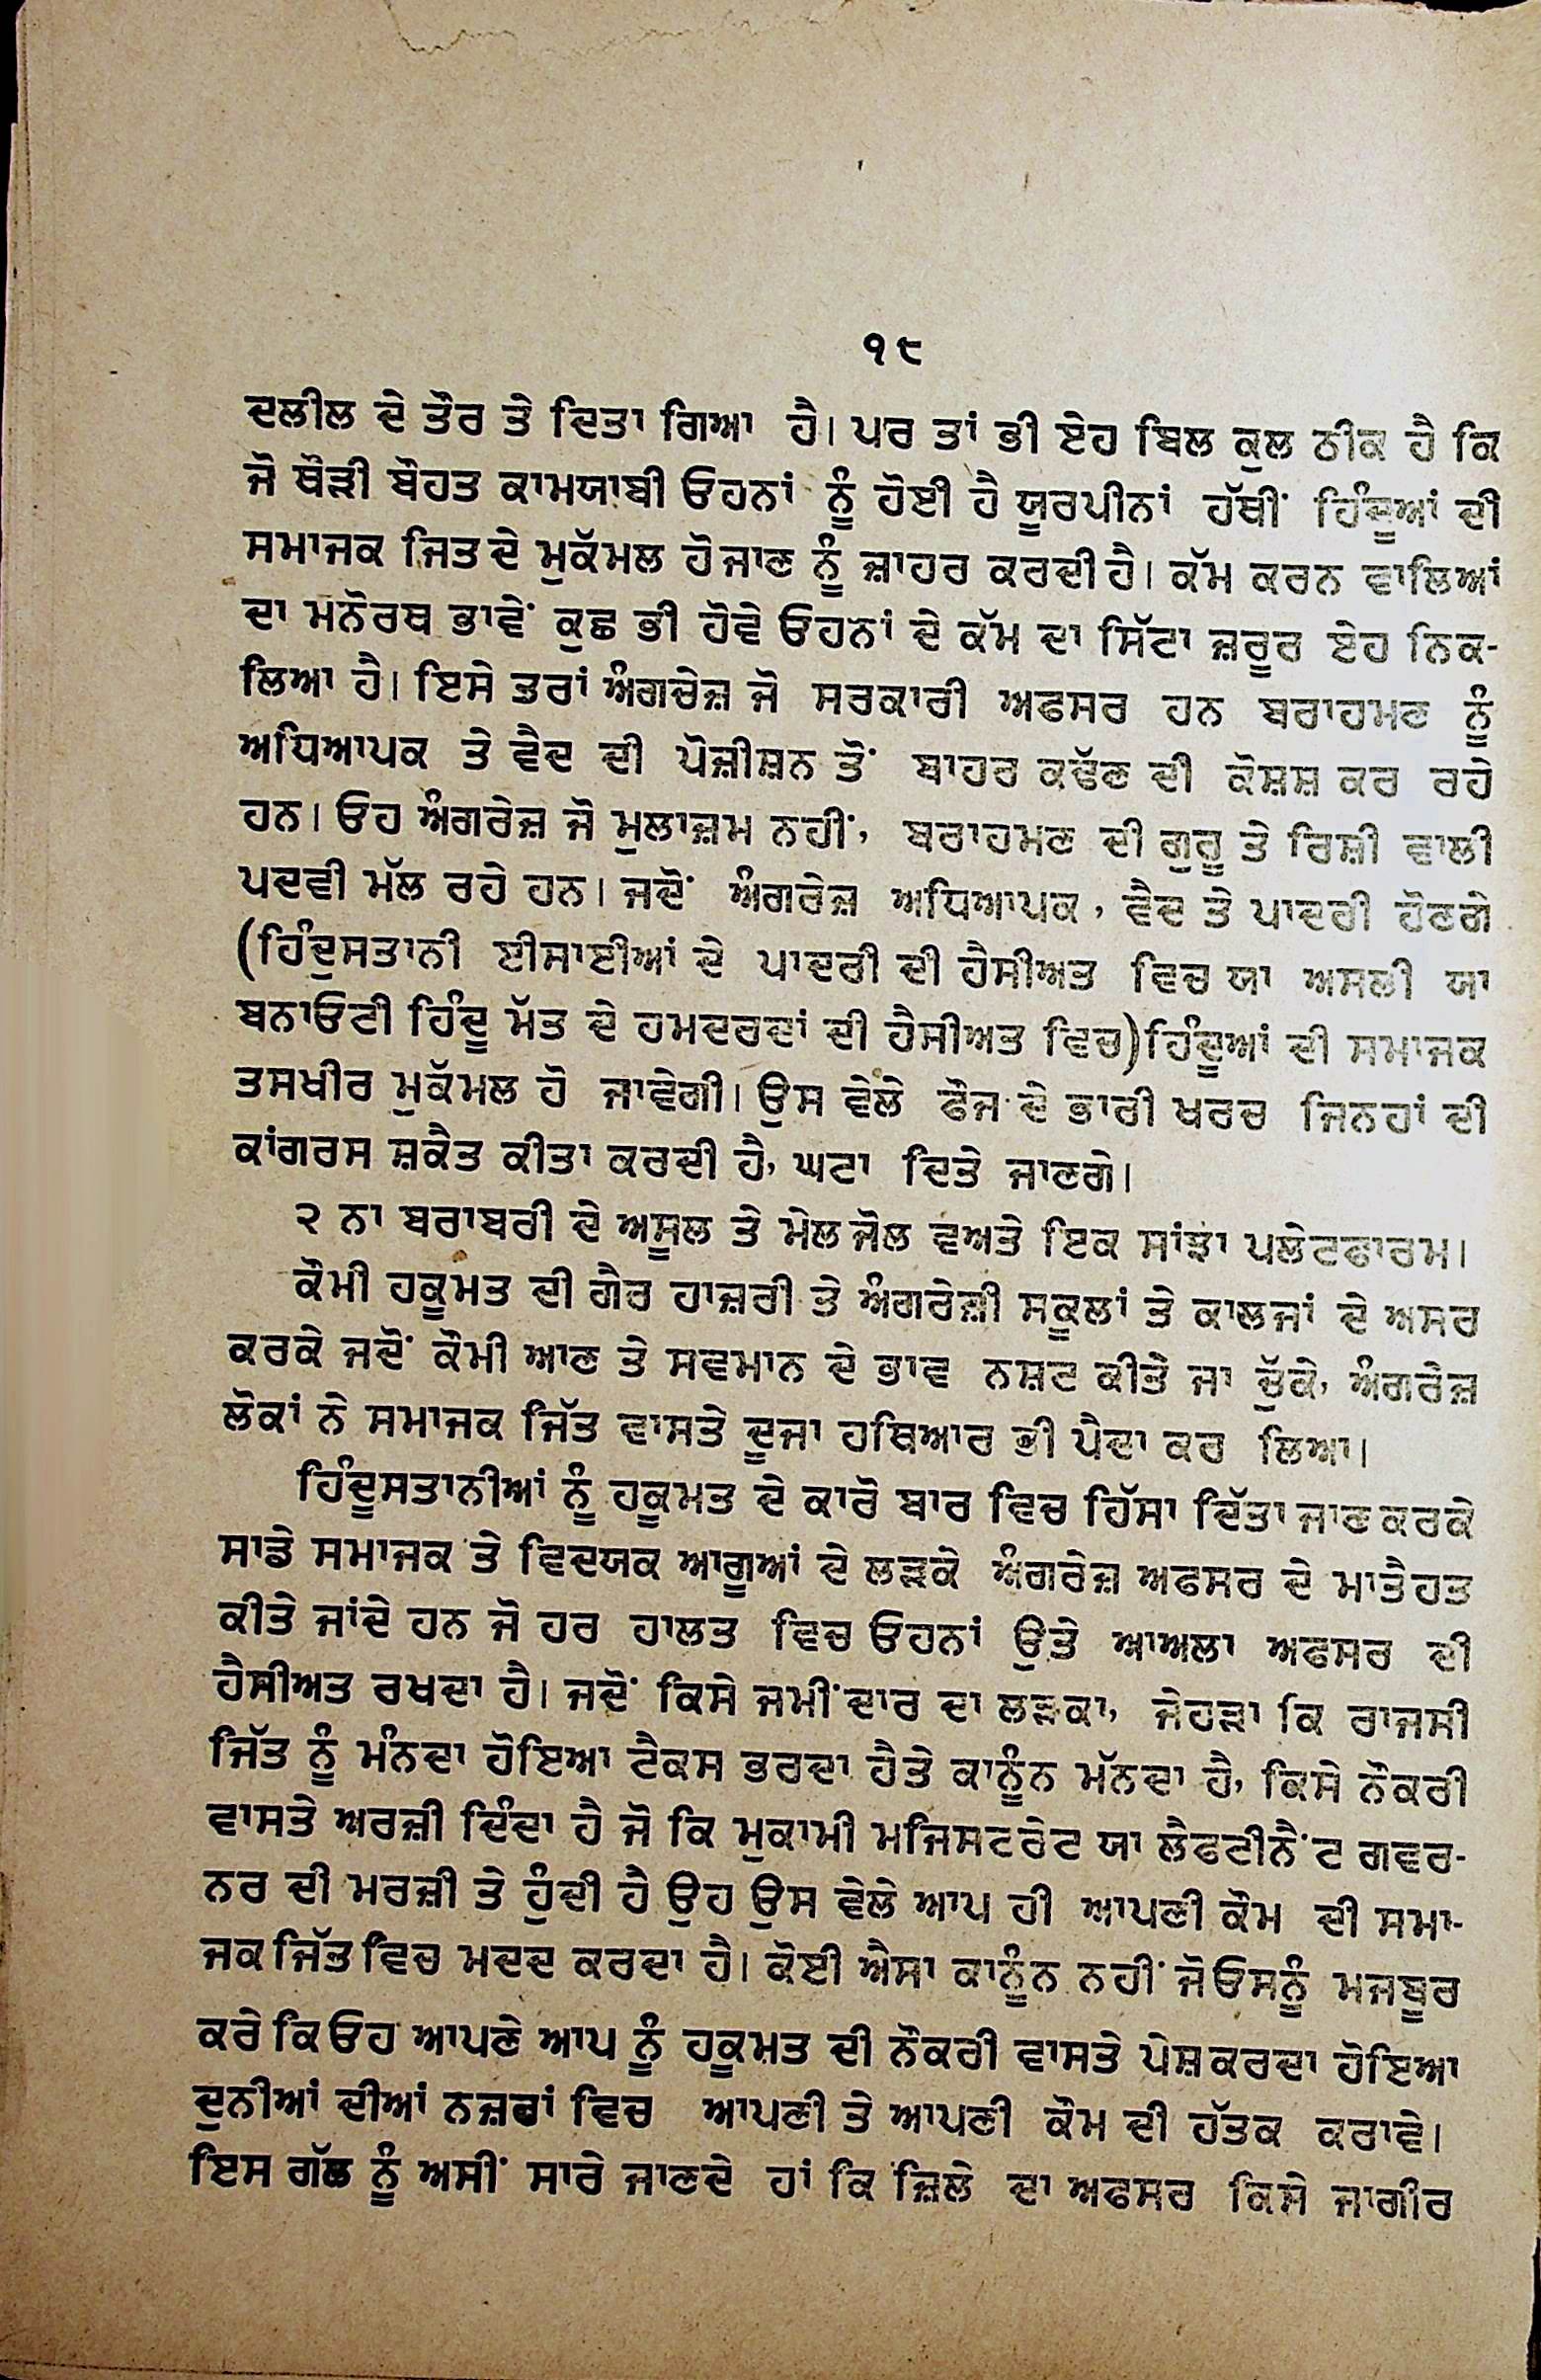 ੧੮
ਦਲੀਲ ਦੇ ਤੌਰ ਤੇ ਦਿਤਾ ਗਿਆ ਹੈ। ਪਰ ਤਾਂ ਭੀ ਏਹ ਬਿਲ ਕੁਲ ਠੀਕ ਹੈ ਕਿ
ਜੋ ਥੋੜੀ ਬੌਹਤ ਕਾਮਯਾਬੀ ਓਹਨਾਂ ਨੂੰ ਹੋਈ ਹੈ ਯੂਰਪੀਨਾਂ ਹੱਥੀਂ ਹਿੰਦੂਆਂ ਦੀ
ਸਮਾਜਕ ਜਿਤ ਦੇ ਮੁਕੱਮਲ ਹੋ ਜਾਣ ਨੂੰ ਜ਼ਾਹਰ ਕਰਦੀ ਹੈ। ਕੱਮ ਕਰਨ ਵਾਲਿਆਂ
ਦਾ ਮਨੋਰਥ ਭਾਵੇਂ ਕੁਛ ਭੀ ਹੋਵੇ ਓਹਨਾਂ ਦੇ ਕੱਮ ਦਾ ਸਿੱਟਾ ਜ਼ਰੂਰ ਏਹ ਨਿਕ-
ਲਿਆ ਹੈ। ਇਸੇ ਤਰਾਂ ਅੰਗਚੇਜ਼ ਜੋ ਸਰਕਾਰੀ ਅਫਸਰ ਹਨ ਬਰਾਹਮਣ ਨੂੰ
ਅਧਿਆਪਕ ਤੇ ਵੈਦ ਦੀ ਪੋਜ਼ੀਸ਼ਨ ਤੋਂ ਬਾਹਰ ਕਢੱਣ ਦੀ ਕੋਸ਼ਸ਼ ਕਰ ਰਹੇ
ਹਨ। ਓਹ ਅੰਗਰੇਜ਼ ਜੋ ਮੁਲਾਜ਼ਮ ਨਹੀਂ, ਬਰਾਹਮਣ ਦੀ ਗੁਰੂ ਤੇ ਰਿਸ਼ੀ ਵਾਲੀ
ਪਦਵੀ ਮੱਲ ਰਹੇ ਹਨ। ਜਦੋਂ ਅੰਗਰੇਜ਼ ਅਧਿਆਪਕ, ਵੈਦ ਤੇ ਪਾਦਰੀ ਹੋਣਗੇ
(ਹਿੰਦੁਸਤਾਨੀ ਈਸਾਈਆਂ ਦੇ ਪਾਦਰੀ ਦੀ ਹੈਸੀਅਤ ਵਿਚ ਯਾ ਅਸਲੀ ਯਾ
ਬਨਾਓਟੀ ਹਿੰਦੂ ਮੱਤ ਦੇ ਹਮਦਰਦਾਂ ਦੀ ਹੈਸੀਅਤ ਵਿਚ) ਹਿੰਦੂਆਂ ਦੀ ਸਮਾਜਕ
ਤਸਖੀਰ ਮੁਕੱਮਲ ਹੋ ਜਾਵੇਗੀ। ਉਸ ਵੇਲੇ ਫੌਜ ਦੇ ਭਾਰੀ ਖਰਚ ਜਿਨਹਾਂ ਦੀ
ਕਾਂਗਰਸ ਸ਼ਕੈਤ ਕੀਤਾ ਕਰਦੀ ਹੈ, ਘਟਾ ਦਿਤੇ ਜਾਣਗੇ।
੨ ਨਾ ਬਰਾਬਰੀ ਦੇ ਅਸੂਲ ਤੇ ਮੇਲ ਜੋਲ ਵਅਤੇ ਇਕ ਸਾਂਝਾ ਪਲੇਟਫਾਰਮ।
ਕੌਮੀ ਹਕੂਮਤ ਦੀ ਗੈਰ ਹਾਜ਼ਰੀ ਤੇ ਅੰਗਰੇਜ਼ੀ ਸਕੂਲਾਂ ਤੇ ਕਾਲਜਾਂ ਦੇ ਅਸਰ
ਕਰਕੇ ਜਦੋਂ ਕੌਮੀ ਆਣ ਤੇ ਸਵਮਾਨ ਦੇ ਭਾਵ ਨਸ਼ਟ ਕੀਤੇ ਜਾ ਚੁੱਕੇ, ਅੰਗਰੇਜ਼
ਲੋਕਾਂ ਨੇ ਸਮਾਜਕ ਜਿੱਤ ਵਾਸਤੇ ਦੂਜਾ ਹਥਿਆਰ ਭੀ ਪੈਦਾ ਕਰ ਲਿਆ।
ਹਿੰਦੂਸਤਾਨੀਆਂ ਨੂੰ ਹਕੂਮਤ ਦੇ ਕਾਰੋ ਬਾਰ ਵਿਚ ਹਿੱਸਾ ਦਿੱਤਾ ਜਾਣ ਕਰਕੇ
ਸਾਡੇ ਸਮਾਜਕ ਤੇ ਵਿਦਯਕ ਆਗੂਆਂ ਦੇ ਲੜਕੇ ਅੰਗਰੇਜ਼ ਅਫਸਰ ਦੇ ਮਾਤੈਹਤ
ਕੀਤੇ ਜਾਂਦੇ ਹਨ ਜੋ ਹਰ ਹਾਲਤ ਵਿਚ ਓਹਨਾਂ ਉਤੇ ਆਅਲਾ ਅਫਸਰ ਦੀ
ਹੈਸੀਅਤ ਰਖਦਾ ਹੈ। ਜਦੋਂ ਕਿਸੇ ਜਮੀਂਦਾਰ ਦਾ ਲੜਕਾ, ਜੇਹੜਾ ਕਿ ਰਾਜਸੀ
ਜਿੱਤ ਨੂੰ ਮੰਨਦਾ ਹੋਇਆ ਟੈਕਸ ਭਰਦਾ ਹੈ ਤੇ ਕਾਨੂੰਨ ਮੱਨਦਾ ਹੈ, ਕਿਸੇ ਨੌਕਰੀ
ਵਾਸਤੇ ਅਰਜ਼ੀ ਦਿੰਦਾ ਹੈ ਜੋ ਕਿ ਮੁਕਾਮੀ ਮਜਿਸਟਰੇਟ ਯਾ ਲੈਫਟੀਨੈਂਟ ਗਵਰ-
ਨਰ ਦੀ ਮਰਜ਼ੀ ਤੇ ਹੁੰਦੀ ਹੈ ਉਹ ਉਸ ਵੇਲੇ ਆਪ ਹੀ ਆਪਣੀ ਕੌਮ ਦੀ ਸਮਾ-
ਜਕ ਜਿੱਤ ਵਿਚ ਮਦਦ ਕਰਦਾ ਹੈ। ਕੋਈ ਐਸਾ ਕਾਨੂੰਨ ਨਹੀਂ ਜੋ ਓਸਨੂੰ ਮਜਬੂਰ
ਕਰੇ ਕਿ ਓਹ ਆਪਣੇ ਆਪ ਨੂੰ ਹਕੂਮਤ ਦੀ ਨੌਕਰੀ ਵਾਸਤੇ ਪੇਸ਼ ਕਰਦਾ ਹੋਇਆ
ਦੁਨੀਆਂ ਦੀਆਂ ਨਜ਼ਰਾਂ ਵਿਚ ਆਪਣੀ ਤੇ ਆਪਣੀ ਕੌਮ ਦੀ ਹੱਤਕ ਕਰਾਵੇ।
ਇਸ ਗੱਲ ਨੂੰ ਅਸੀਂ ਸਾਰੇ ਜਾਣਦੇ ਹਾਂ ਕਿ ਜ਼ਿਲੇ ਦਾ ਅਫਸਰ ਕਿਸੇ ਜਾਗੀਰ